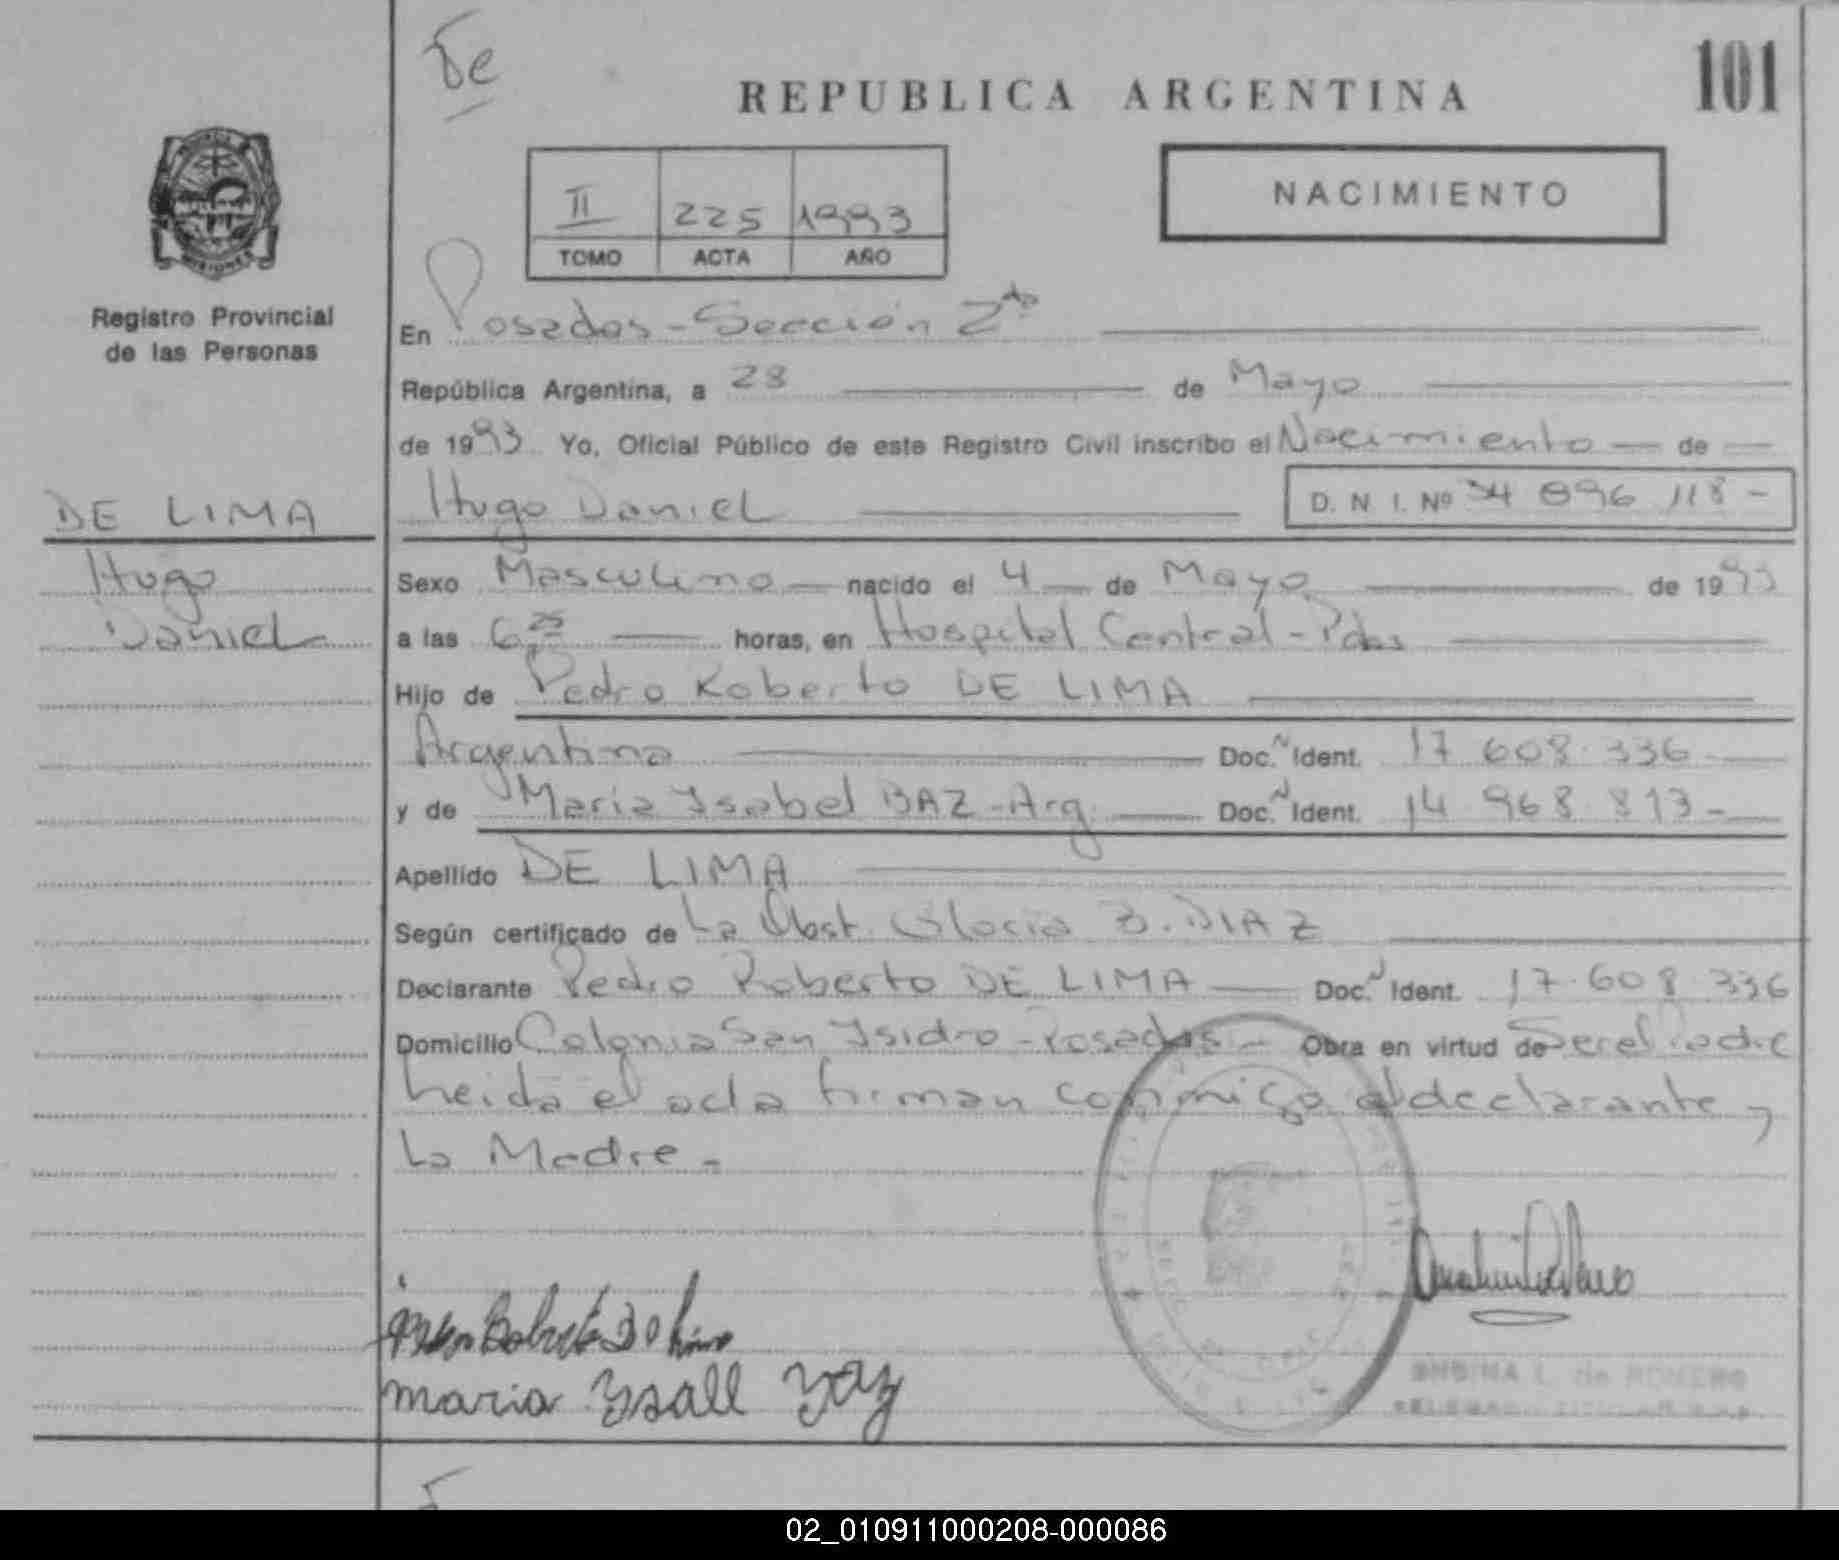 De
REPUBLICA ARGENTINA
101
NACIMIENTO
II 225 1993
TOMO ACTA AÑO
MISIONES
Registro Provincial
de las Personas
En Posadas - Sección 2da
República Argentina, a 28 de Mayo
de 1993 Yo, Oficial Público de este Registro Civil inscribo el Nacimiento de
DE LIMA
Hugo Daniel
D. N. I. Nº 34 896 118 -
Hugo
Daniel
Sexo Masculino nacido el 4 de Mayo de 1993
a las 6,25 horas, en Hospital Central - Pdas
Hijo de Pedro Roberto DE LIMA
Argentina Doc. N Ident. 17 608 336
y de Maria Ysabel BAZ - Arg. Doc. N Ident. 14 968 813 -
Apellido DE LIMA
Según certificado de La Obst. Gloria B. DIAZ
Declarante Pedro Roberto DE LIMA Doc. N Ident. 17.608 336
Domicilio Colonia San Ysidro - Posadas - Obra en virtud de Ser el Padre
Leida el acta firman conmigo el declarante y
La Madre -
maria Ysall
L. de ROMERO
02_010911000208-000086